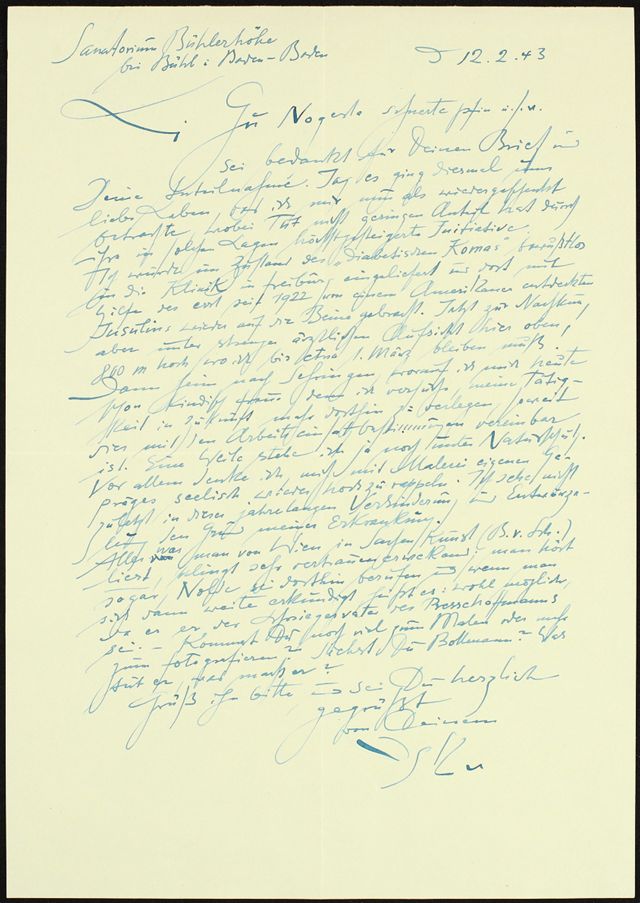 Sanatorium Bühlerhöhe
bei Bühl i Baden-Baden
D 12.2.43
Sei bedankt für Deinen Brief und
Deine Anteilnahme. Ja, es ging diesmal ums
liebe Leben, das ich mir nun als wiedergeschenkt
betrachte, wobei Tut nicht geringen Anteil hat durch
ihre in solchen Lagen höchst gesteigerte Initiative.
Ich wurde im Zustand des "diabetischen Komas" bewußtlos
in die Klinik in Freiburg eingeliefert und dort mit
Hilfe des erst seit 1922 von einem Amerikaner entdeckten
Insulins wieder auf die Beine gebracht. Jetzt zur Nachkur,
aber unter strenger ärztlichen Aufsicht hier oben,
800 m hoch, wo ich bis etwa 1. März bleiben muß.
Dann heim nach Sehringen, worauf ich mich heute
schon kindisch freue, denn ich versuche, meine Tätig-
keit in Zukunft mehr dorthin zu verlegen, soweit
dies mit den Arbeitseinsatzbestimmungen vereinbar
ist. Eine Weile stehe ich ja noch unter Naturschutz.
Vor allem denke ich, mich mit Malerei eigenen Ge-
präges seelisch wieder hochzurappeln. Ich sehe nicht
zuletzt in dieser jahrelangen Verhinderung und Entwurze-
lung den Grund meiner Erkrankung.
Alles was man von Wien in Sachen Kunst (B.v.Sch.)
liest, klingt sehr vertrauenerweckend; man hört
sogar, Nolde sei dorthin berufen und wenn man
sich dann weiter erkundigt heißt es: wohl möglich,
da er der Schwiegervater des Presse Hoffmanns
sei. – Kommst Du noch viel zum Malen oder mehr
zum fotografieren? Siehst Du Bollmann? Was
tut er, was macht er?
Grüß ihn bitte und sei Du herzlich
gegrüßt
von Deinem